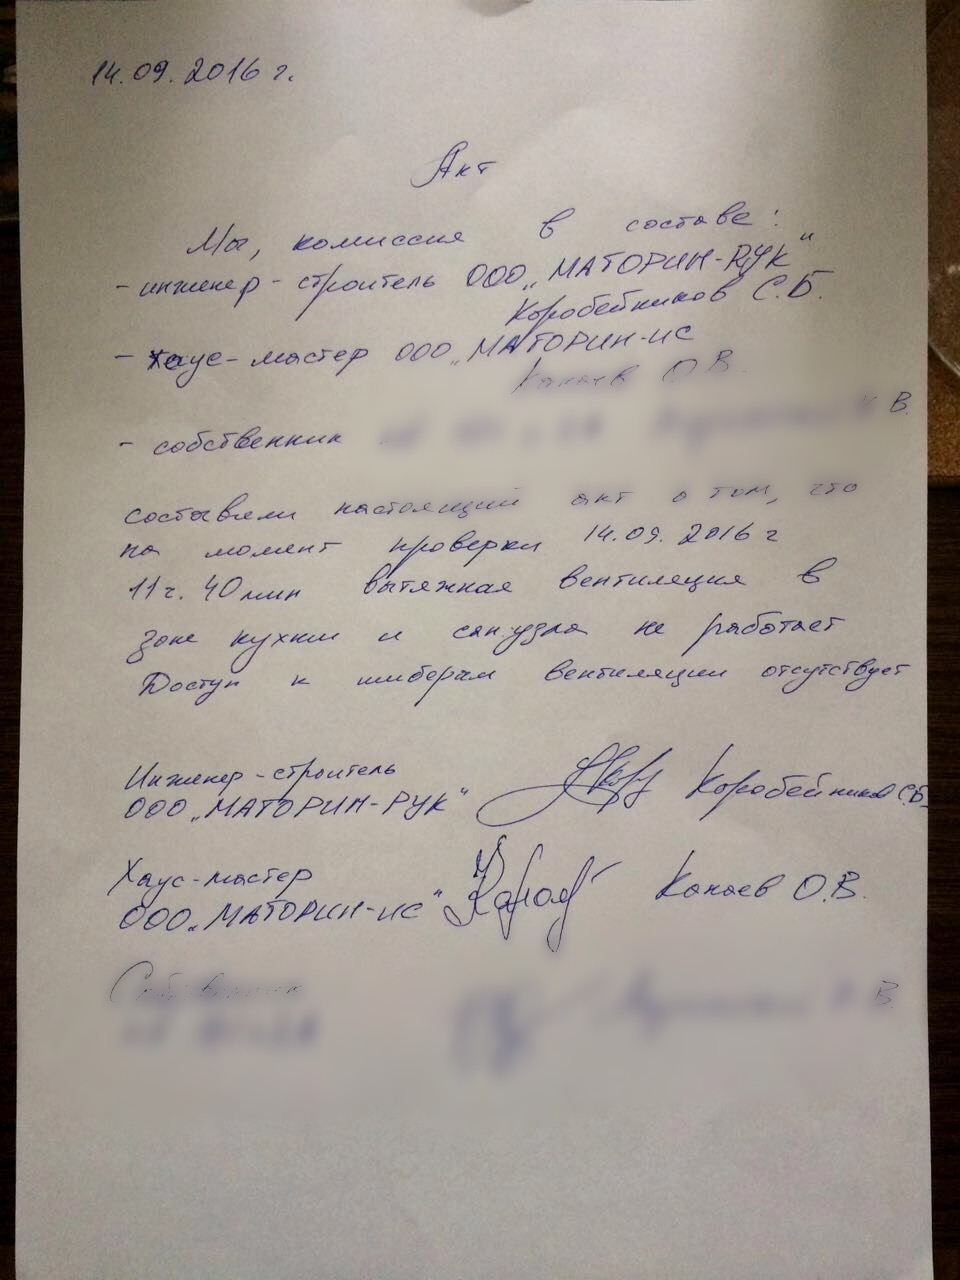 14.09.2016 г.
Акт
Мы, комиссия в составе:
- инженер-строитель ООО „МАТОРИН-РУК"
Коробейников С.Б.
- Хаус-мастер ООО „МАТОРИН-ИС
Канаев О.В.
- собственник В.
составили настоящий акт о том, что
на момент проверки 14.09.2016 г
11 г. 40 мин вытяжная вентиляция в
зоне кухни и сан.узла не работает
Доступ к шиберам вентиляции отсутствует
Инженер-строитель
ООО „МАТОРИН-РУК" Коробейников С.Б.
Хаус-мастер
ООО „МАТОРИН-ИС" Канаев О.В.
Собственник В.